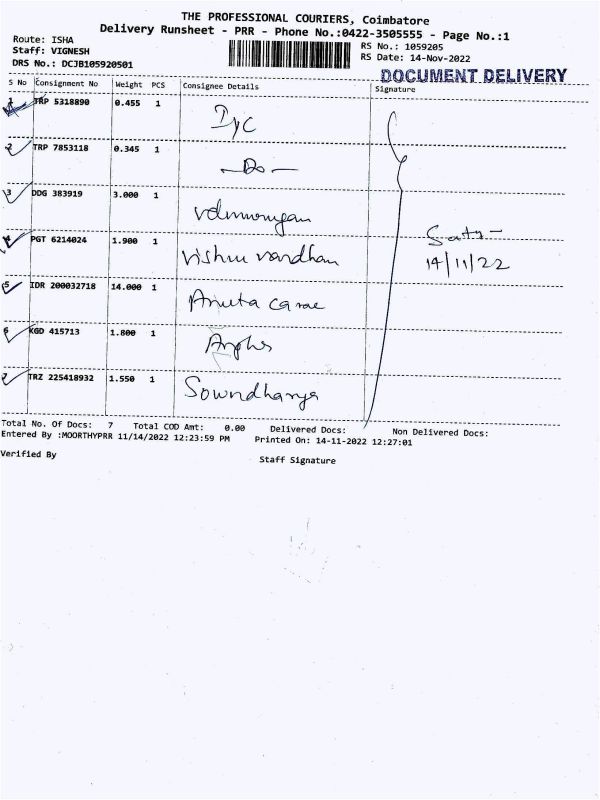 THE PROFESSIONAL COURIERS, Coimbatore
Delivery Runsheet - PRR - Phone No.:0422-3505555 - Page No.:1
Route: ISHA
Staff: VIGNESH
DRS No.: DCJB105920501
RS No.: 1059205
RS Date: 14-Nov-2022
DOCUMENT DELIVERY
S No Consignment No Weight PCS Consignee Details Signature
1 TRP 5318890 0.455 1 Iyc
2 TRP 7853118 0.345 1 —Do—
3 DDG 383919 3.000 1
4 PGT 6214024 1.900 1 Vishnu vardhan
14/11/22
5 IDR 200032718 14.000 1
6 KGD 415713 1.800 1
7 TRZ 225418932 1.550 1 Sowndharya
Total No. Of Docs: 7 Total COD Amt: 0.00 Delivered Docs: Non Delivered Docs:
Entered By :MOORTHYPRR 11/14/2022 12:23:59 PM Printed On: 14-11-2022 12:27:01
Verified By Staff Signature